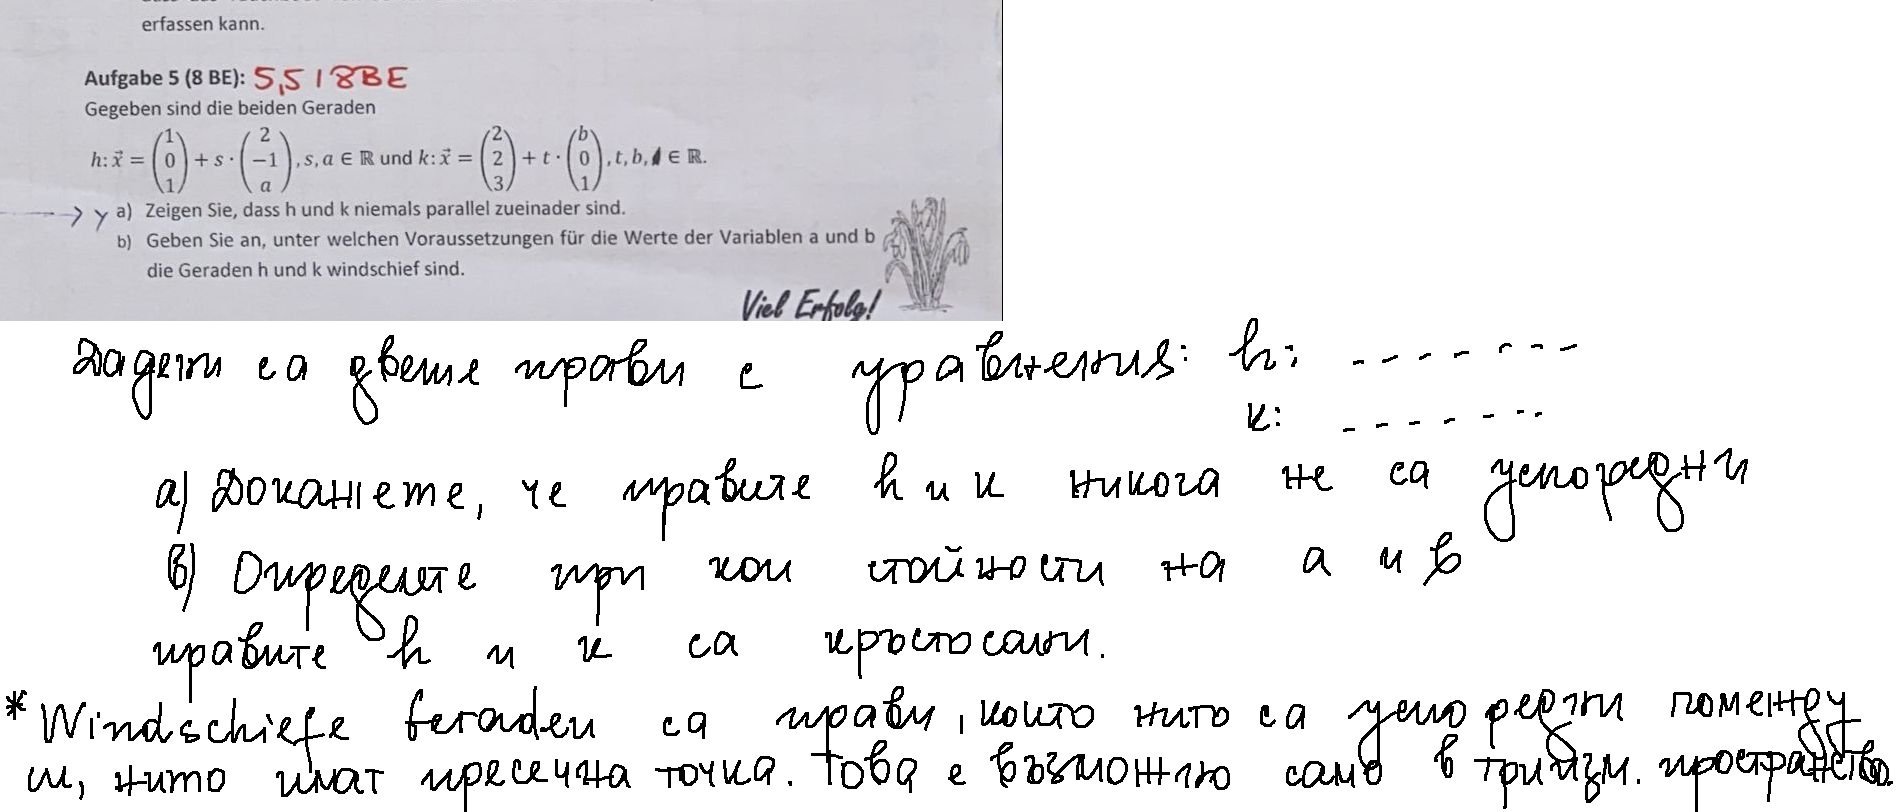 erfassen kann.
Aufgabe 5 (8 BE): 5,5 / 8BE
Gegeben sind die beiden Geraden
h: x⃗ = (1 0 1) + s · (2 −1 a), s, a ∈ ℝ und k: x⃗ = (2 2 3) + t · (b 0 1), t, b, ∈ ℝ.
a) Zeigen Sie, dass h und k niemals parallel zueinader sind.
b) Geben Sie an, unter welchen Voraussetzungen für die Werte der Variablen a und b
die Geraden h und k windschief sind.
Viel Erfolg!
Дадени са двете прави с уравнения: h: - - - - - - -
k: - - - - - - -
а) Докажете, че правите h и k никога не са успоредни
б) Определете при кои стойности на a и b
правите h и k са кръстосани.
* Windschiefe Geraden са прави, които нито са успоредни помежду
си, нито имат пресечна точка. Това е възможно само в триизм. пространство.